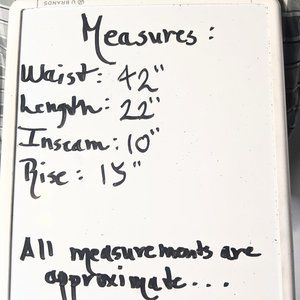 U BRANDS
Measures:
Waist: 42"
Length: 22"
Inseam: 10"
Rise: 15"
All measurements are
approximate...